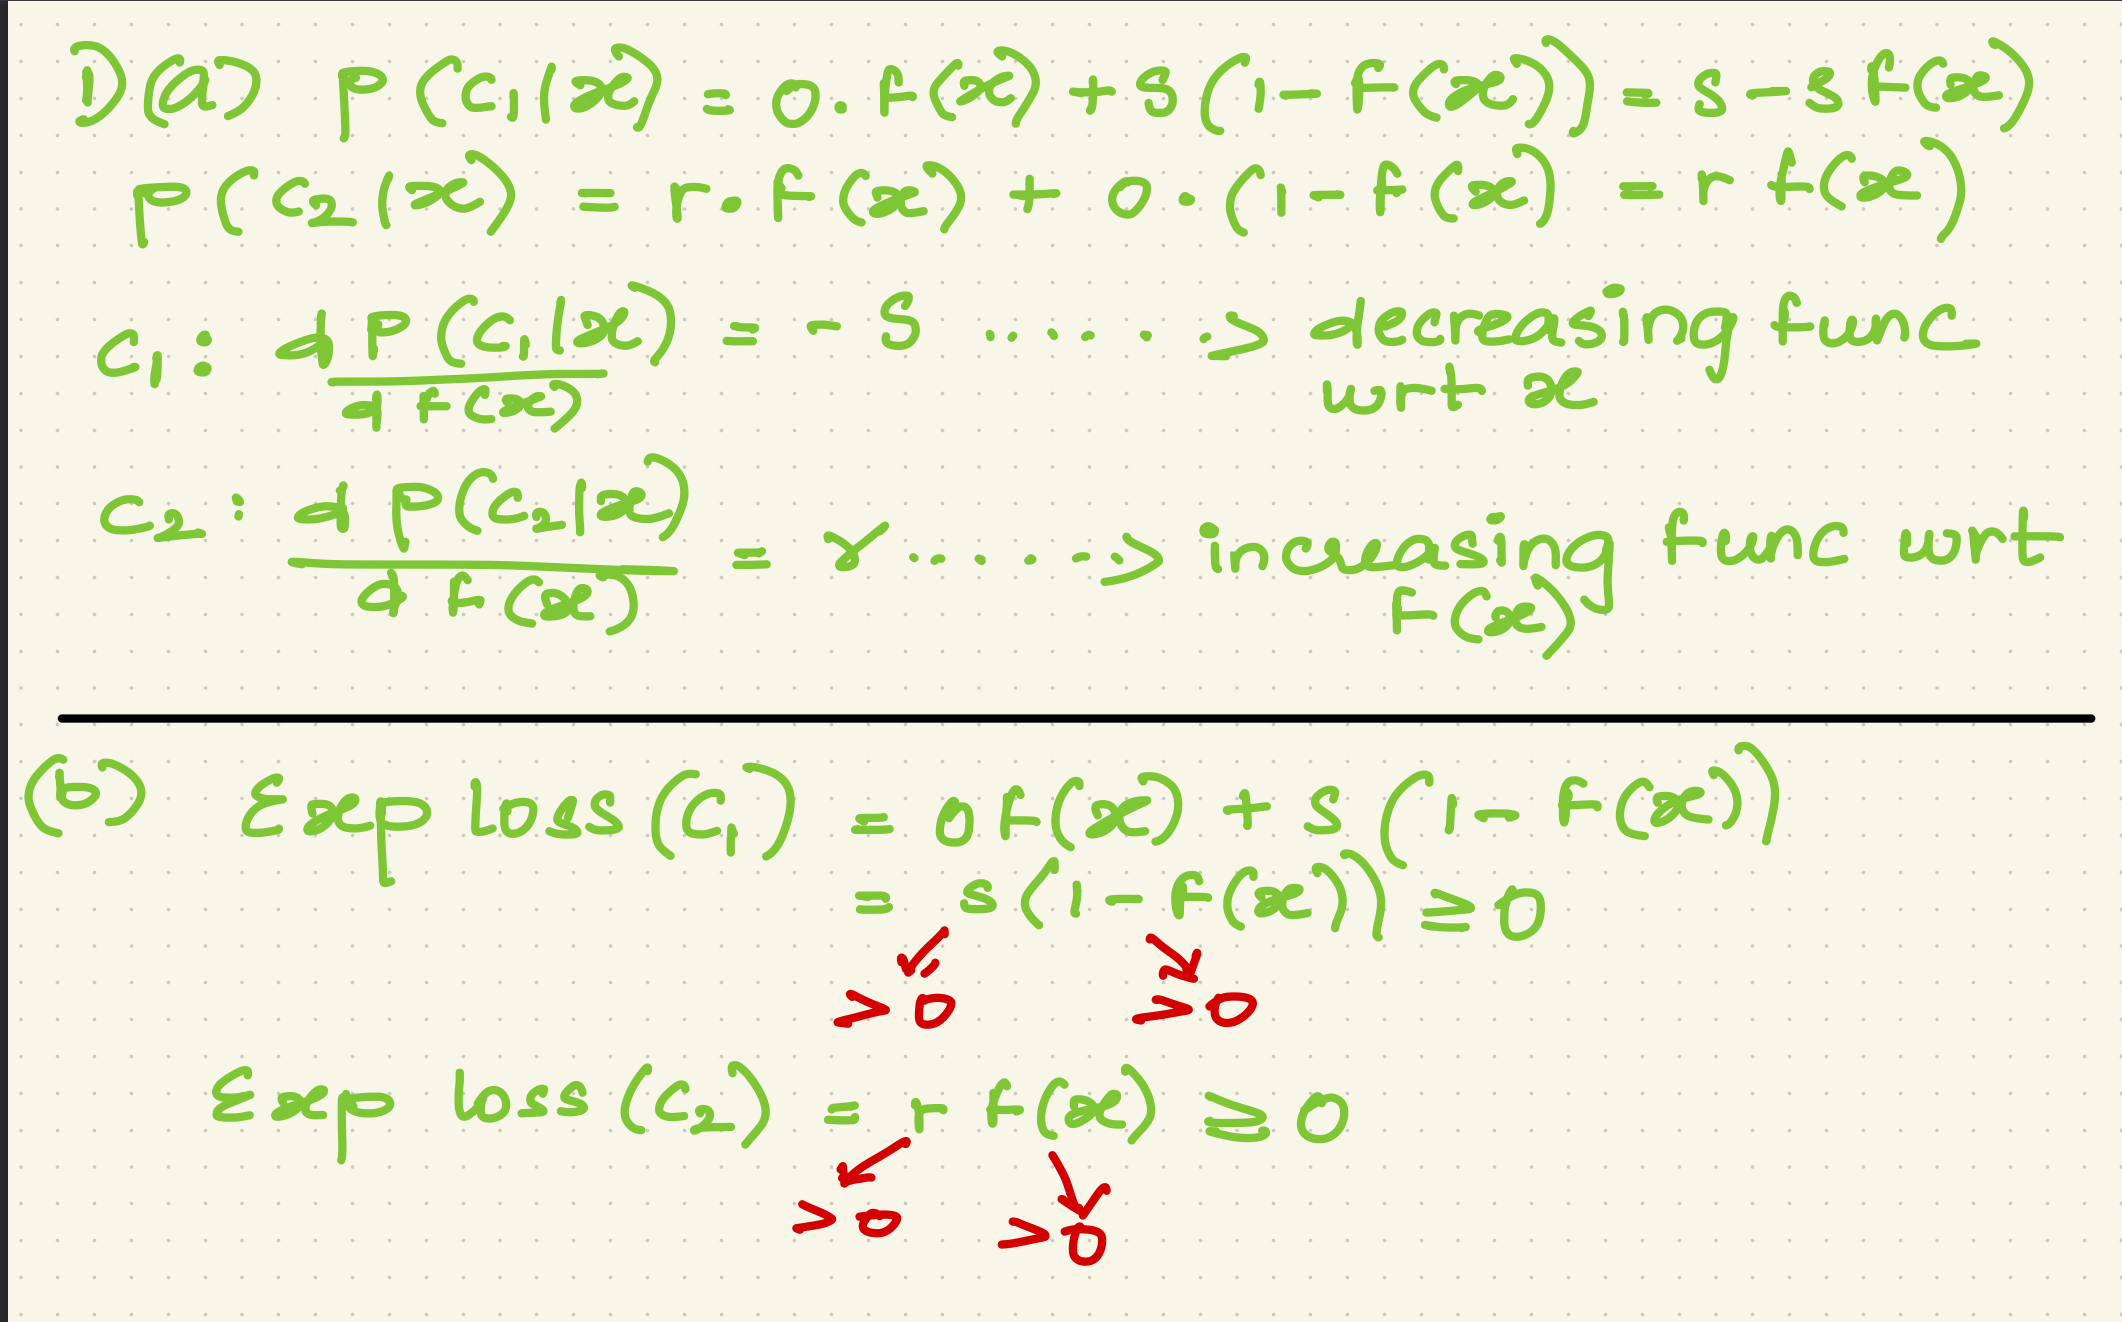 1) (a) P(C₁|x) = 0.f(x) + S(1-f(x)) = S - S f(x)
P(C₂|x) = r.f(x) + 0.(1-f(x) = r f(x)
C₁: d P(C₁|x) / d f(x) = - S .....> decreasing func
wrt x
C₂: d P(C₂|x) / d f(x) = r .....> increasing func wrt
f(x)
(b) Exp loss(C₁) = 0 f(x) + S(1-f(x))
= S(1-f(x)) ≥ 0
> 0 > 0
Exp loss(C₂) = r f(x) ≥ 0
> 0 > 0